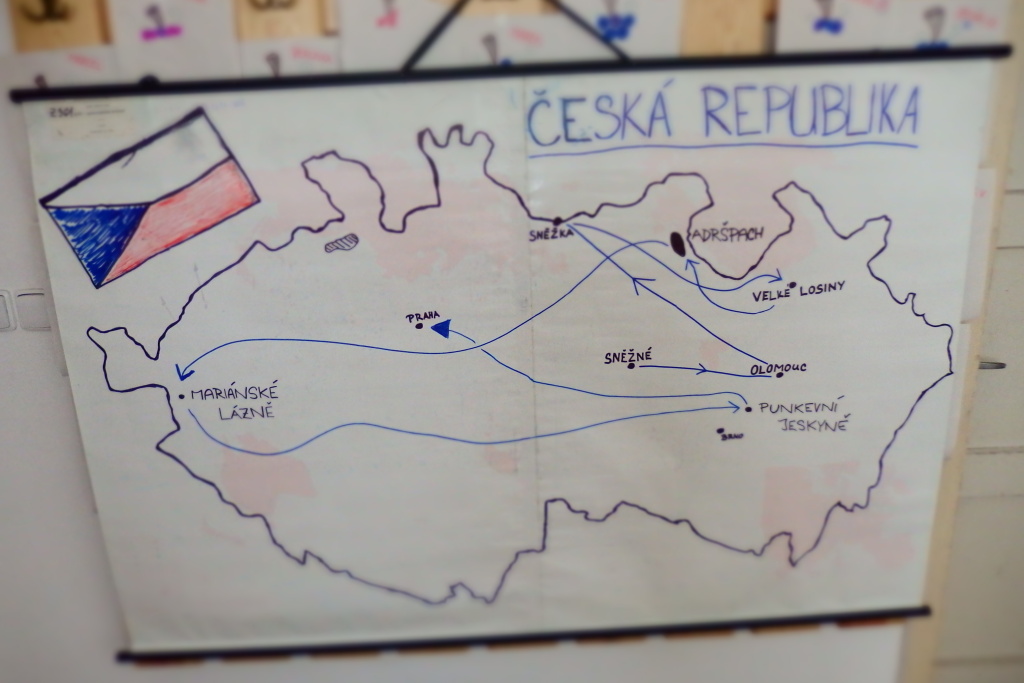 ČESKÁ REPUBLIKA
SNĚŽKA
ADRŠPACH
VELKÉ LOSINY
PRAHA
SNĚŽNÉ
OLOMOUC
MARIÁNSKÉ
LÁZNĚ
PUNKEVNÍ
JESKYNĚ
BRNO